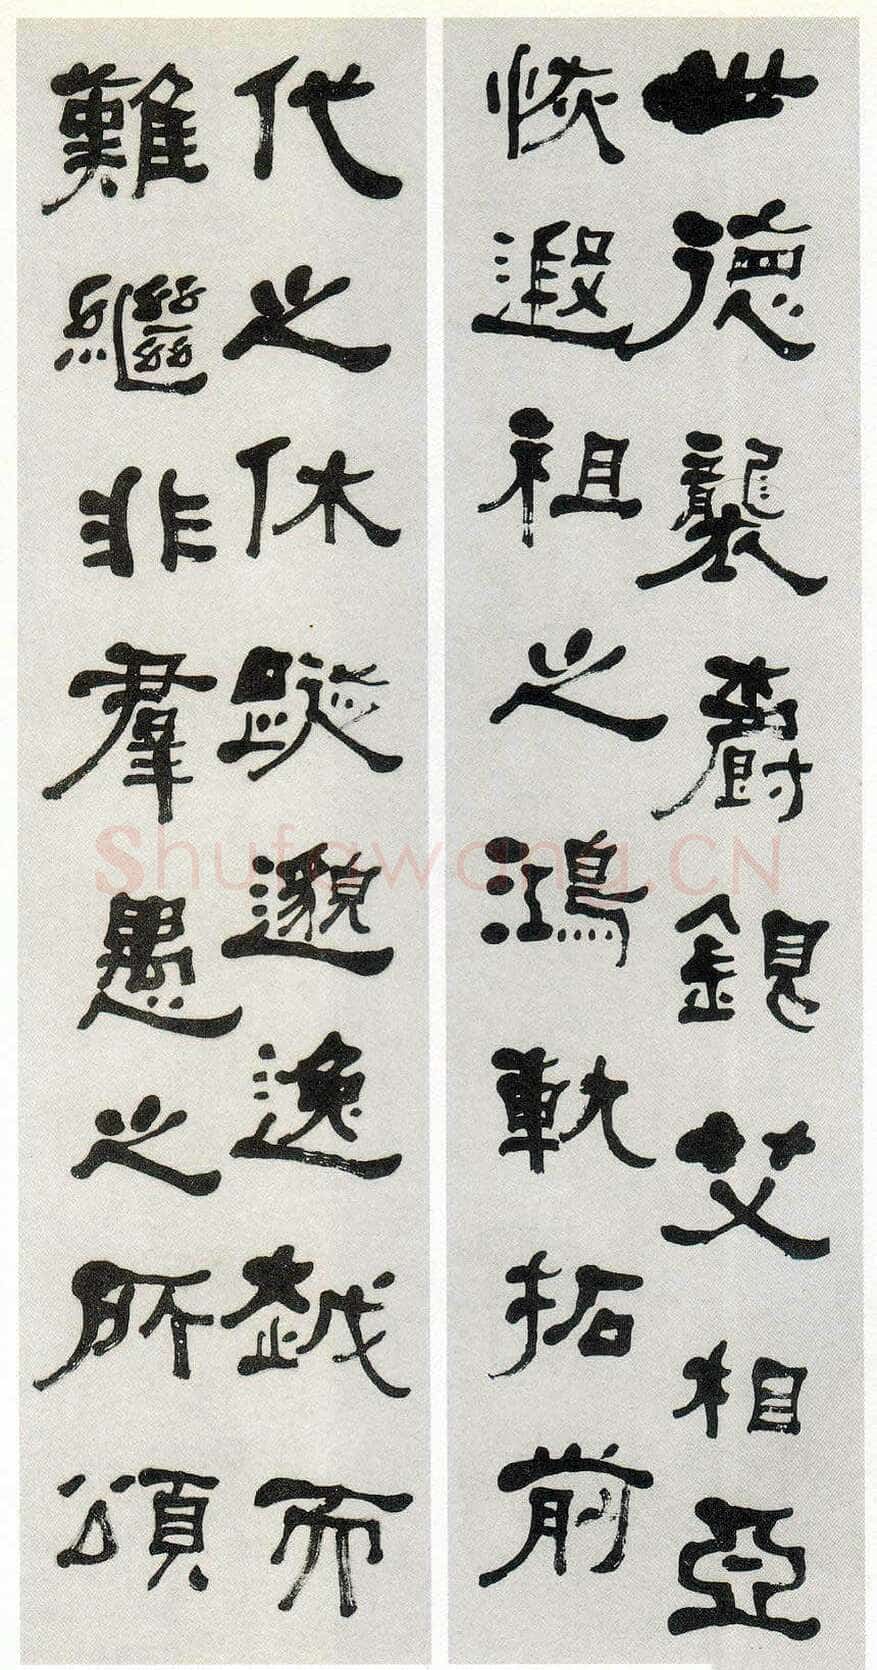 世德襲爵銀艾相亞
恢遐祖之鴻軌拓前
代之休蹤邈逸越而
難繼非羣愚之所頌
Shufawang.CN